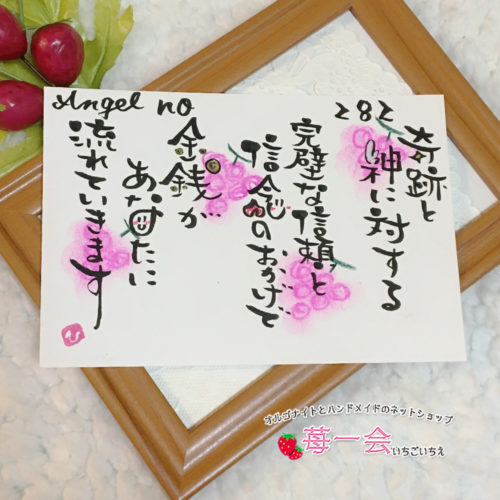 Angel no
282
奇跡と
神に対する
完璧な信頼と
信念のおかげで
金銭が
あなたに
流れていきます
オルゴナイトとハンドメイドのネットショップ
苺一会 いちごいちえ